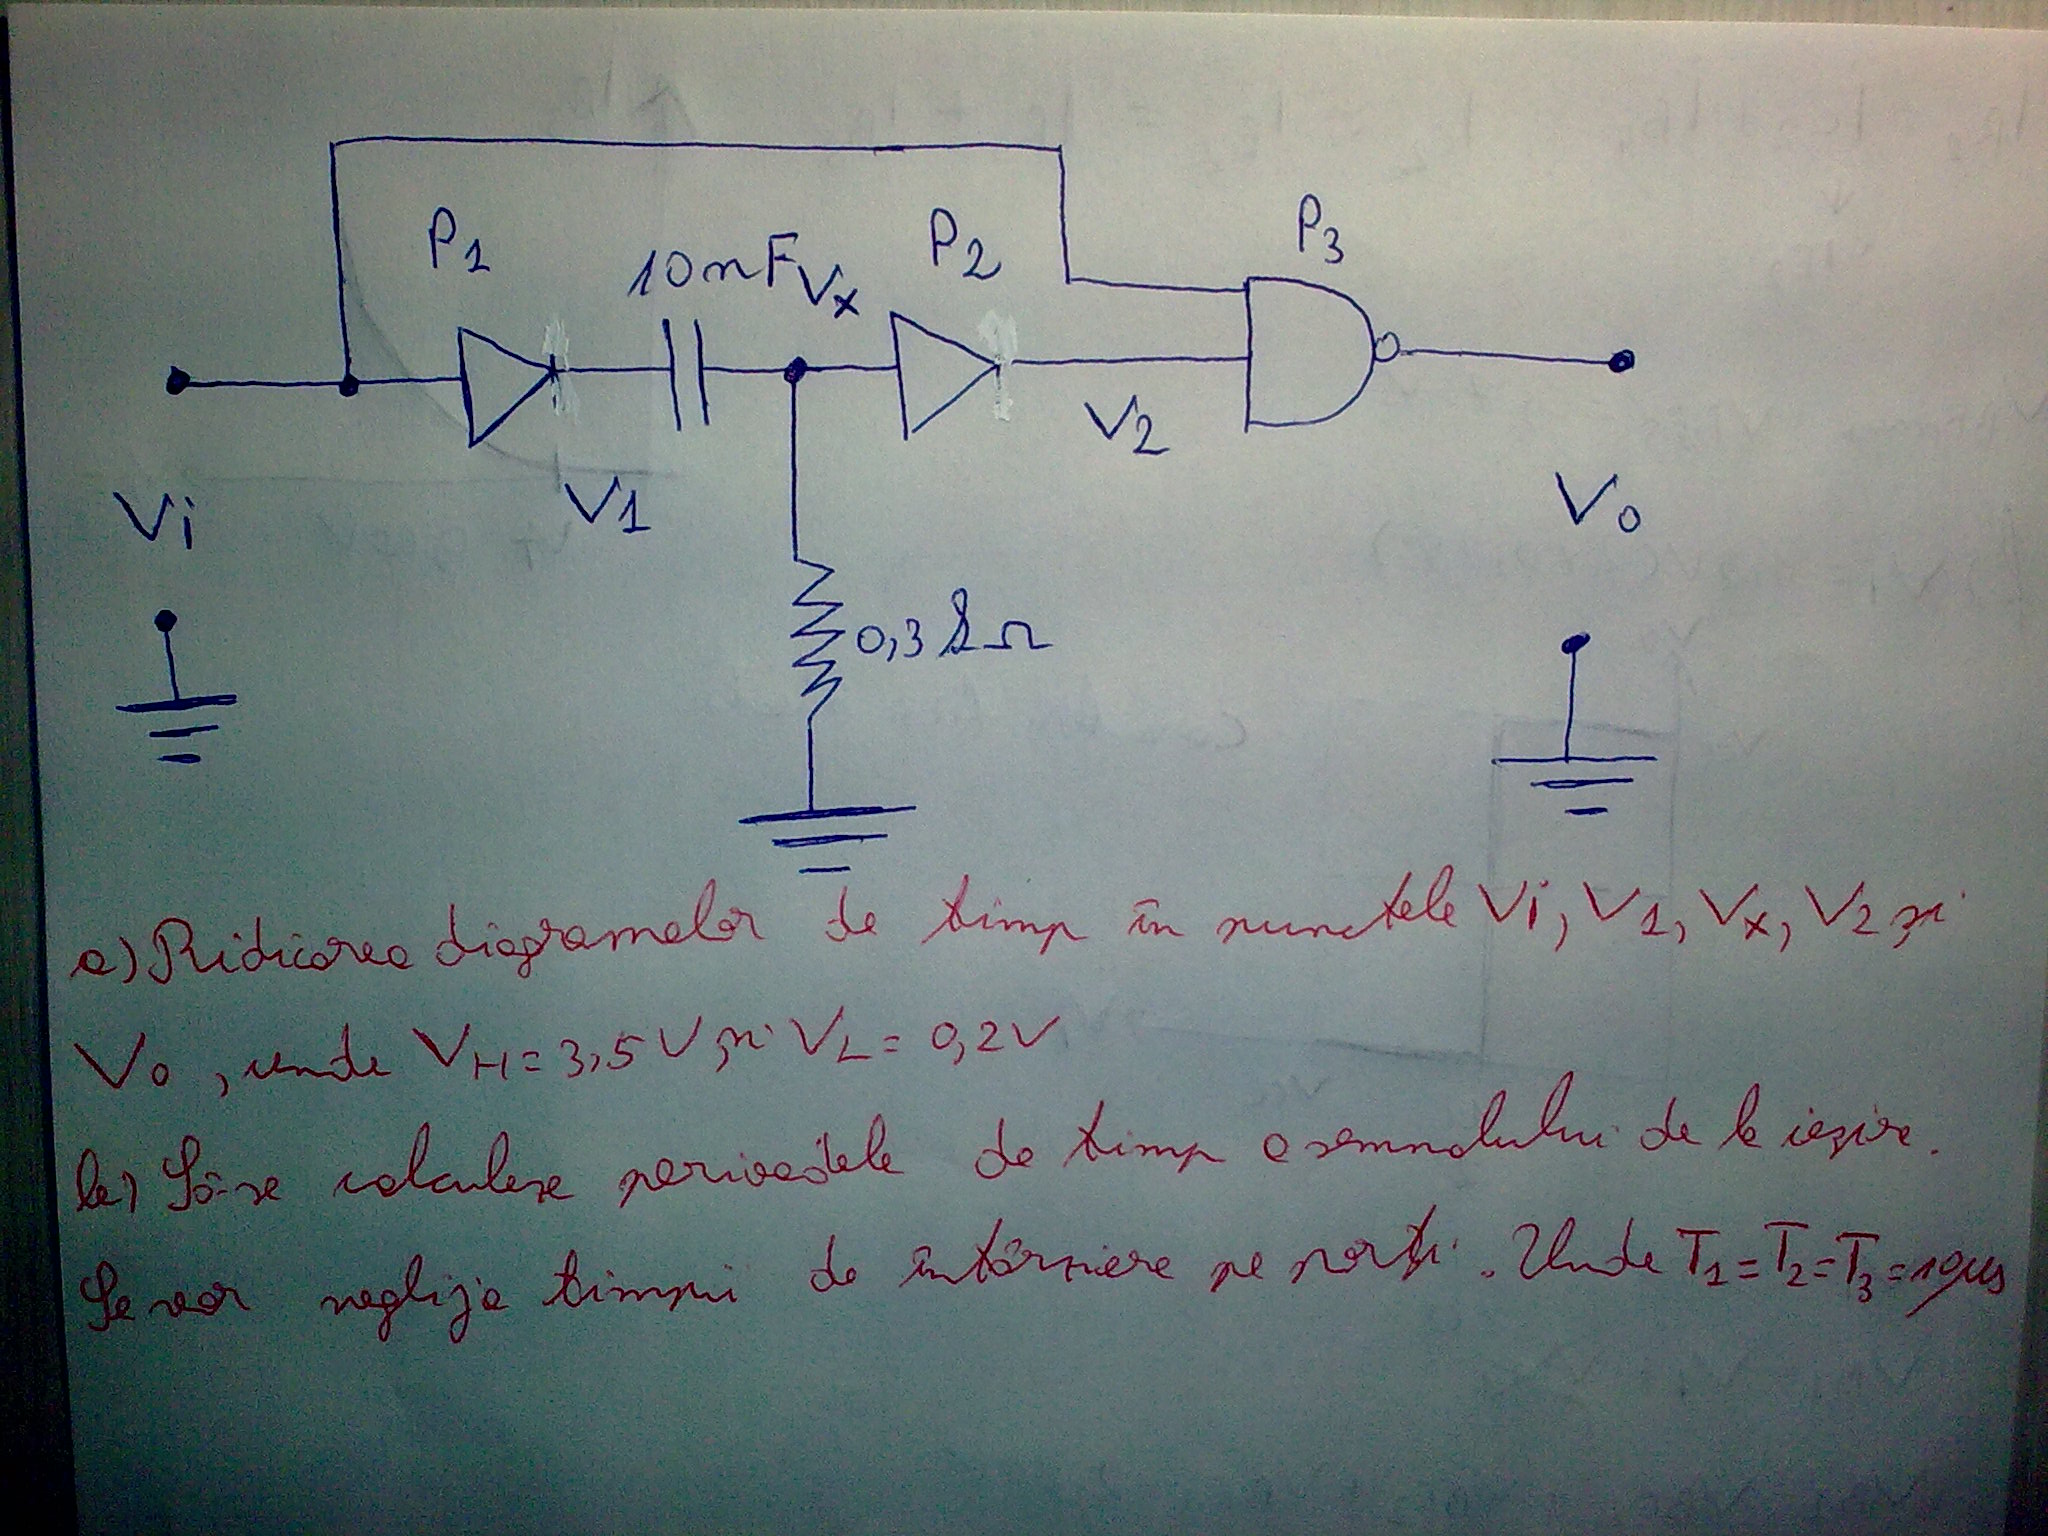 P1
10nF
Vx
P2
P3
V2
Vi
V1
Vo
0,3 kΩ
a) Ridicarea diagramelor de timp în punctele Vi, V1, Vx, V2 și
Vo, unde VH = 3,5 V și VL = 0,2V
b) Să se calculeze perioadele de timp a semnalului de la ieșire.
Se vor neglija timpii de întârziere pe porți. Unde T1=T2=T3=10μs